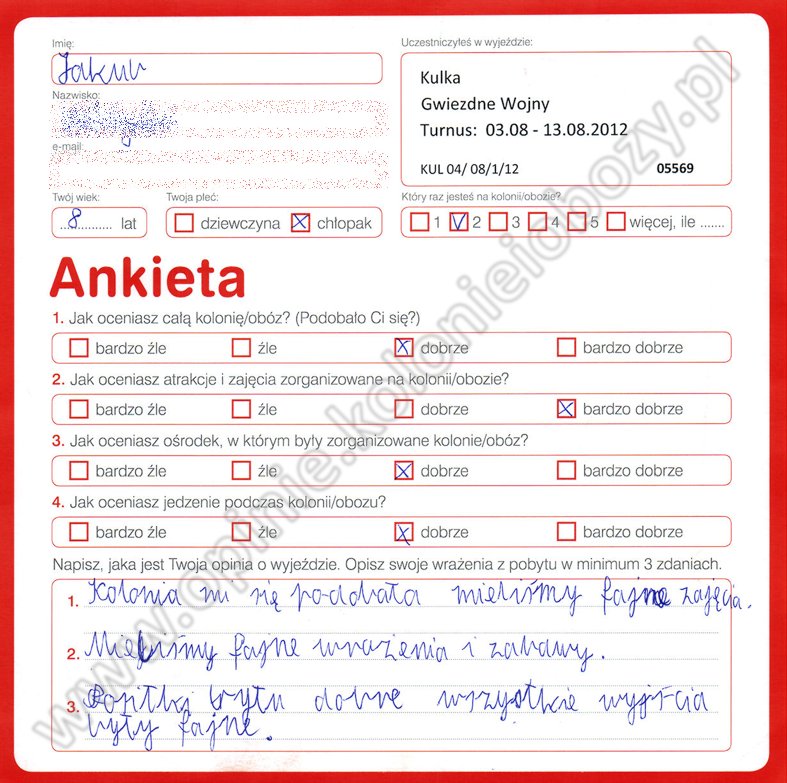 Imię:
Jakub
Uczestniczyłeś w wyjeździe:
Kulka
Gwiezdne Wojny
Turnus: 03.08 - 13.08.2012
KUL 04/ 08/1/12 05569
Nazwisko:
e-mail:
Twój wiek: Twoja płeć: Który raz jesteś na kolonii/obozie?
...8.......... lat dziewczyna chłopak 1 2 3 4 5 więcej, ile .......
Ankieta
1. Jak oceniasz całą kolonię/obóz? (Podobało Ci się?)
bardzo źle źle dobrze bardzo dobrze
2. Jak oceniasz atrakcje i zajęcia zorganizowane na kolonii/obozie?
bardzo źle źle dobrze bardzo dobrze
3. Jak oceniasz ośrodek, w którym były zorganizowane kolonie/obóz?
bardzo źle źle dobrze bardzo dobrze
4. Jak oceniasz jedzenie podczas kolonii/obozu?
bardzo źle źle dobrze bardzo dobrze
Napisz, jaka jest Twoja opinia o wyjeździe. Opisz swoje wrażenia z pobytu w minimum 3 zdaniach.
1. Kolonia mi się podobała mieliśmy fajne zajęcia.
2. Mieliśmy fajne wrażenia i zabawy.
3. dobre wszystkie wyjścia
były fajne.
www.opinie.kolonieiobozy.pl